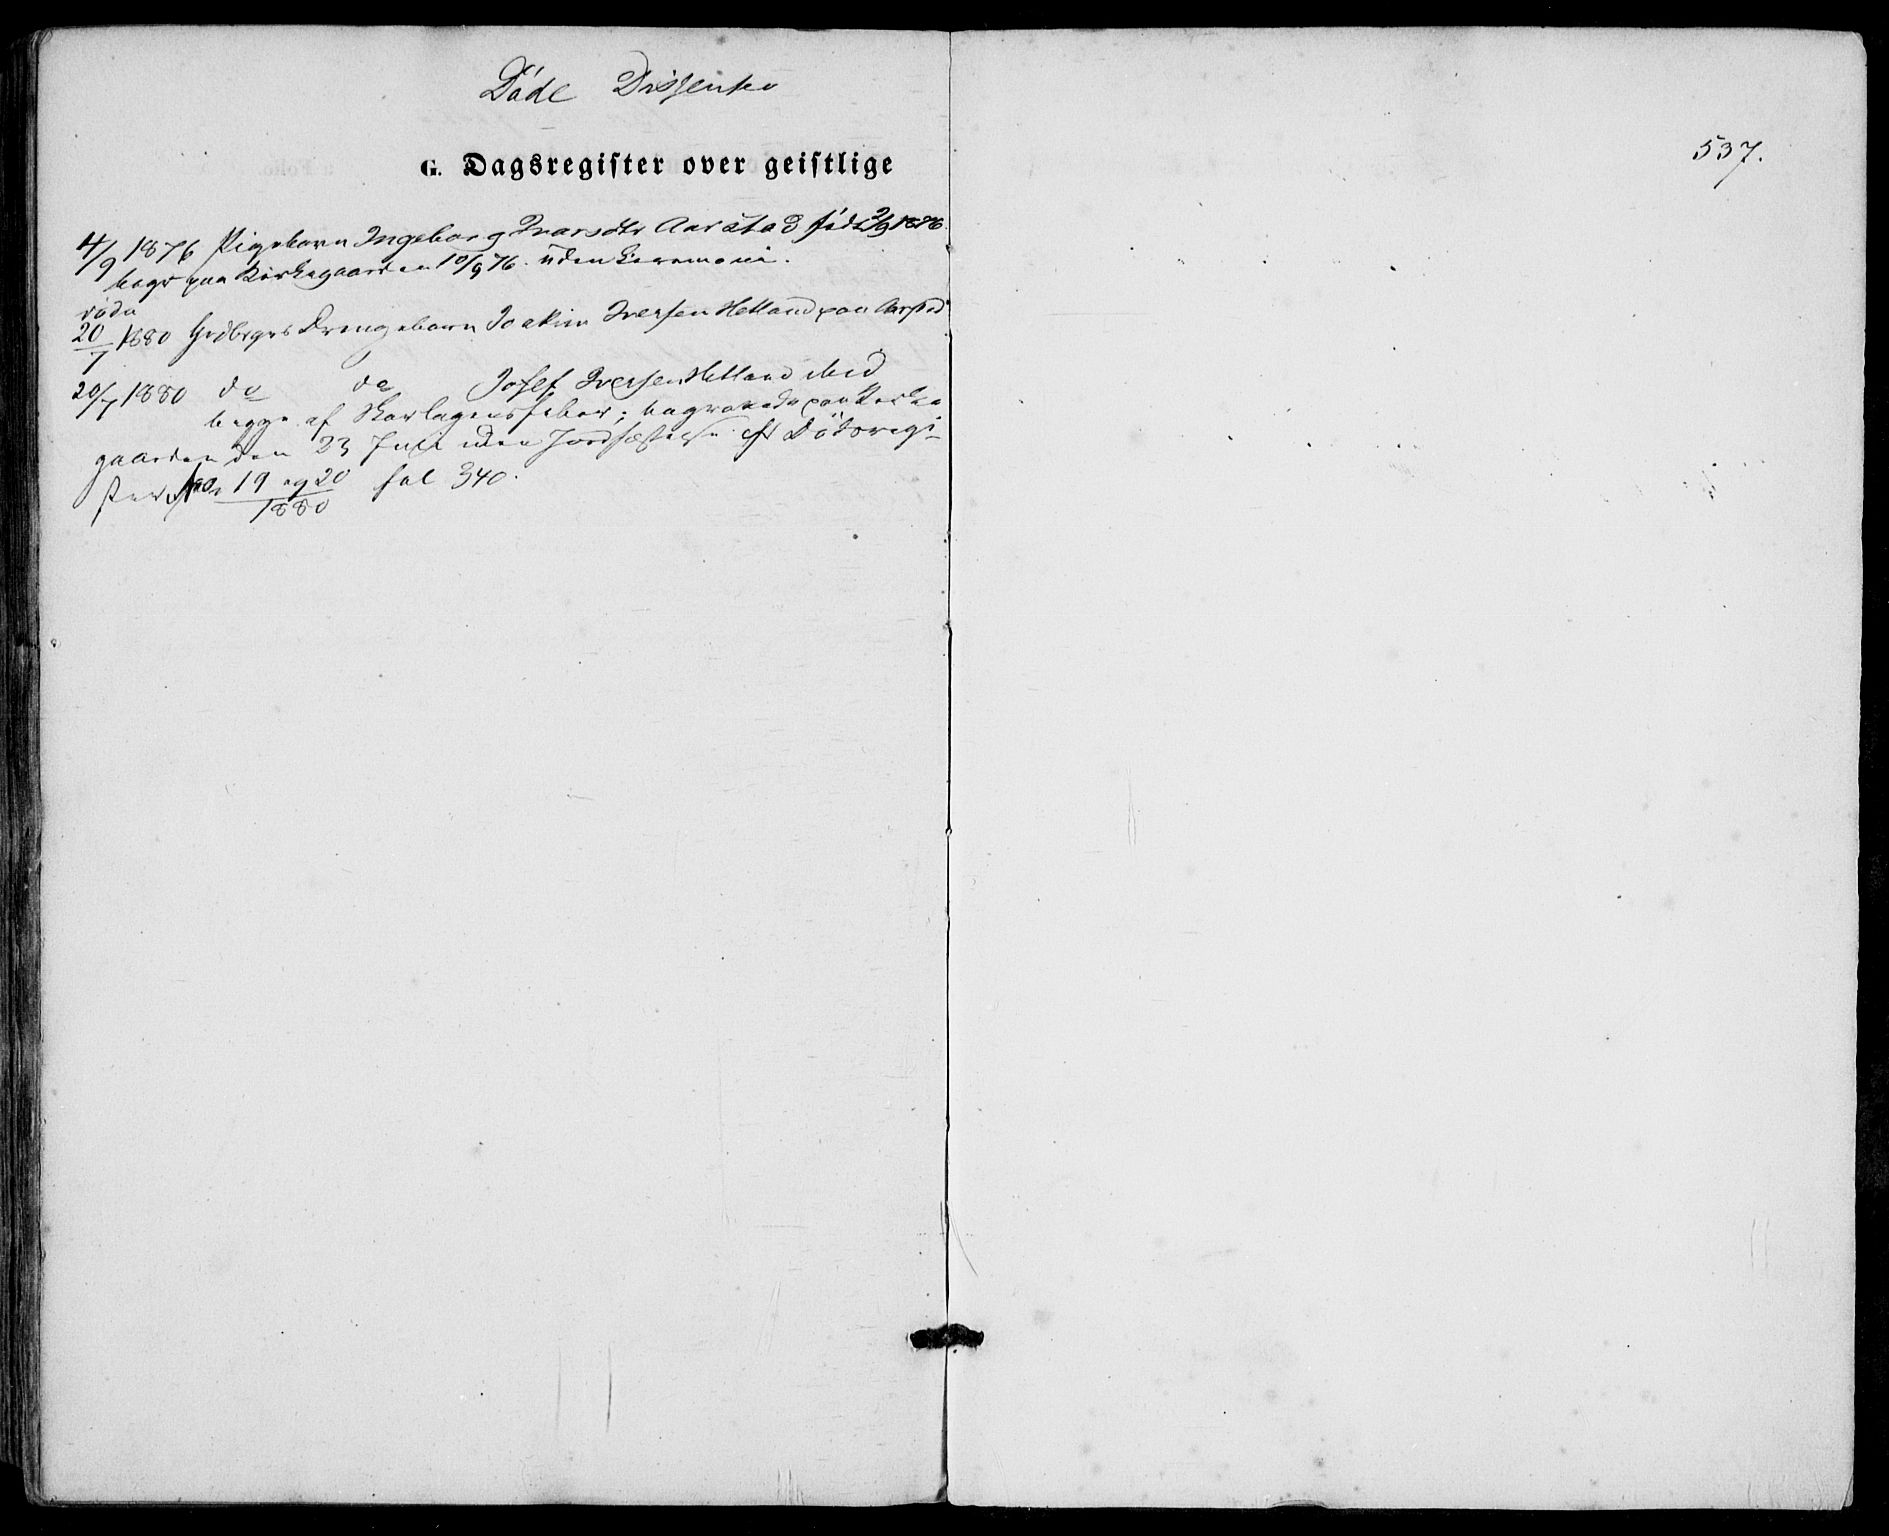 Døde Dissentere
G. Dagsregister over geistlige
537.
4/9 1876 Pigebarn Ingeborg Ivarsdtr Aarstad født 2/9 1876
begr paa Kirkegaarden 10/9 76. uden Ceremoni.
døde
20/7 1880 Drengebarn Joakim Iversen Helland paa Aarstad
20/7 1880 do do Josef Iversen Helland ibid
begge af Skarlagensfeber; begravede paa Kirke
gaarden den 23 Juli uden Jordfæstelse cfr Dødsregi-
ster No 19 og 20 fol 340.
1880